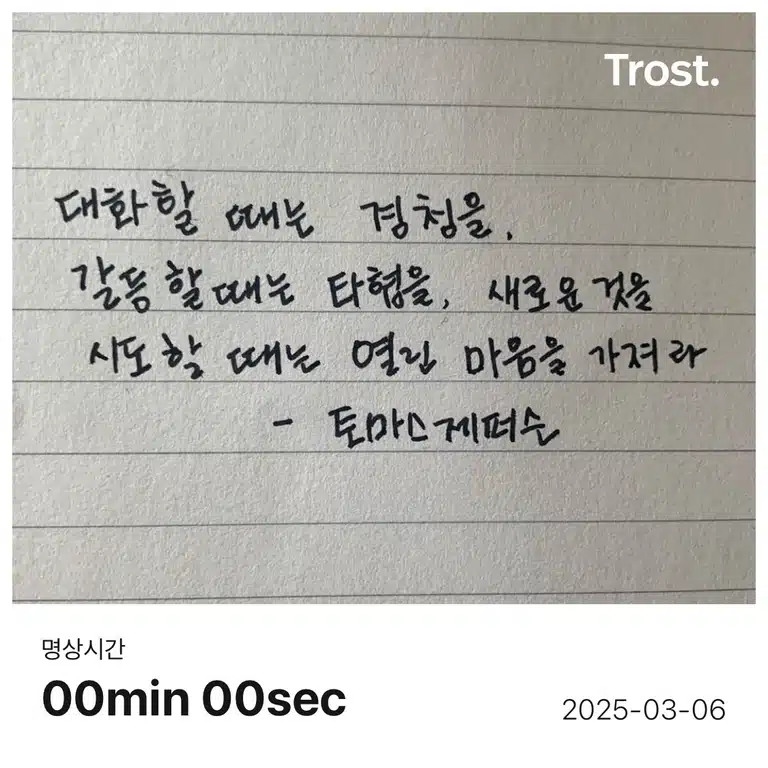 Trost.
대화할 때는 경청을,
갈등할 때는 타협을, 새로운 것을
시도할 때는 열린 마음을 가져라
- 토마스제퍼슨
명상시간
00min 00sec
2025-03-06